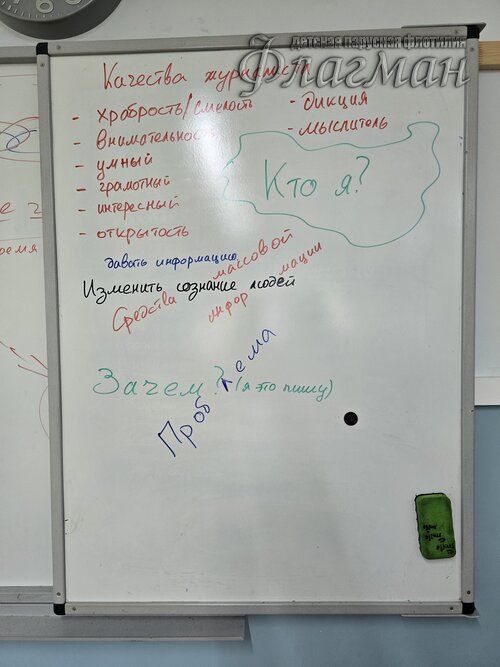 детская парусная флотилия
Флагман
Качества журналиста
- храбрость/смелость
- внимательность
- умный
- грамотный
- интересный
- открытость
- дикция
- мыслитель
Кто я?
давать информацию
Изменить сознание людей
Средства массовой
информации
Зачем? (я это пишу)
Проблема